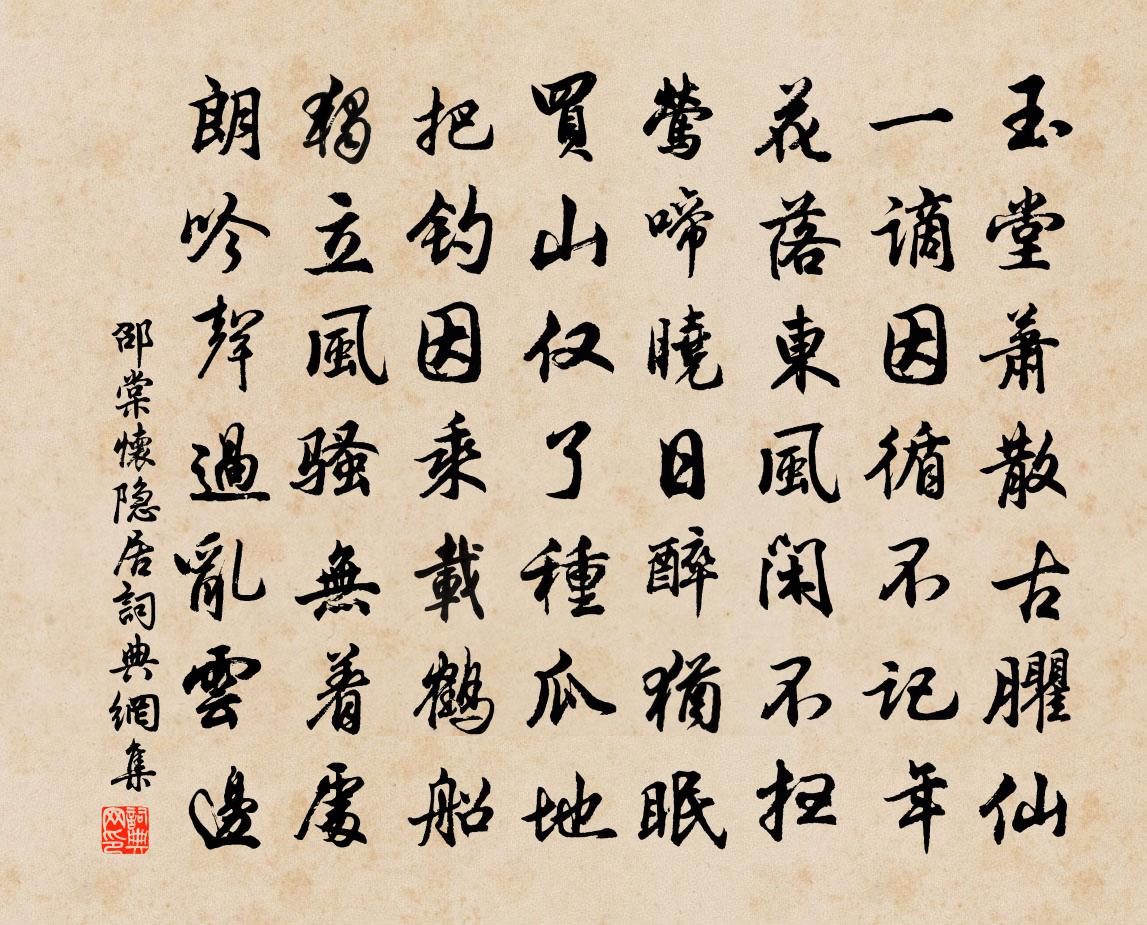 玉堂蕭散古臞仙
一謫因循不記年
花落東風閑不扫
鶯啼曉日醉猶眠
買山仅了種瓜地
把钓因乘載鶴船
獨立風騷無着處
朗吟聲過亂雲邊
邵棠懷隐居詞典網集
詞典
网印